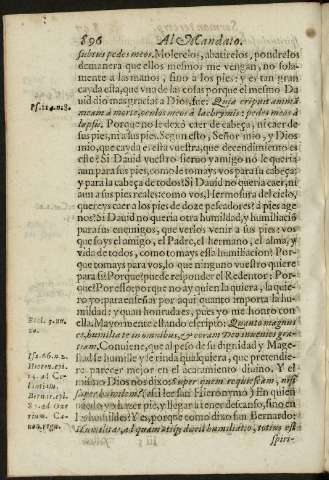 896 Al Mandato.
subtus pedes meos. Molerelos, abatirelos, pondrelos
demanera que ellos mesmos me vengan, no sola-
mente a las manos, sino a los pies: y es tan gran
cayda esta, que vna de las cosas porque el mesmo Da
uid dio mas gracias a Dios, fue: Quia eripuit animã
Ps. 114. n. 8.
meam à morte, oculos meos à lachrymis: pedes meos à
lapsu. Porque no le dexò caer de cabeça, ni caer de
sus pies, ni a sus pies. Segun esto, Señor mio, y Dios
mio, que cayda es esta vuestra, que decendimiento es
este? Si Dauid vuestro sieruo y amigo no le queria
aun para sus pies, como le tomays vos para su cabeça:
y para la cabeça de todos? Si Dauid no queria caer, ni
aun a sus pies reales: como vos, Hermosura del cielo,
quereys caer a los pies de doze pescadores? a pies age-
nos? Si Dauid no queria otra humildad, y humiliaciõ
para sus enemigos, que verlos venir a sus pies: vos
que soys el amigo, el Padre, el hermano, el alma, y
vida de todos, como tomays essa humiliacion? Por-
que tomays para vos, lo que ninguno vuestro quiere
para si? Porque? puede responder el Redentor: Por-
que? Por esso: porque no ay quien la quiera, la quie-
ro yo: para enseñar por aqui quanto importa la hu-
mildad: y quan honrada es, pues yo me honro con
Eccl. 3. nu.
ella. Mayormente estando escripto: Quanto magnus
20.
es, humilia te in omnibus, & coram Deo inuenies gra-
tiam. Conuiene, que al peso de su dignidad y Mage-
Isa. 66. n. 2.
stad se humille y se rinda qualquiera, que pretendie-
re parecer mejor en el acatamiento diuino. Y el
mismo Dios nos dixo: super quem requiescam, nisi
super humilem? (assi lee san Hieronymo) En quien
Bernardo:
spiri-